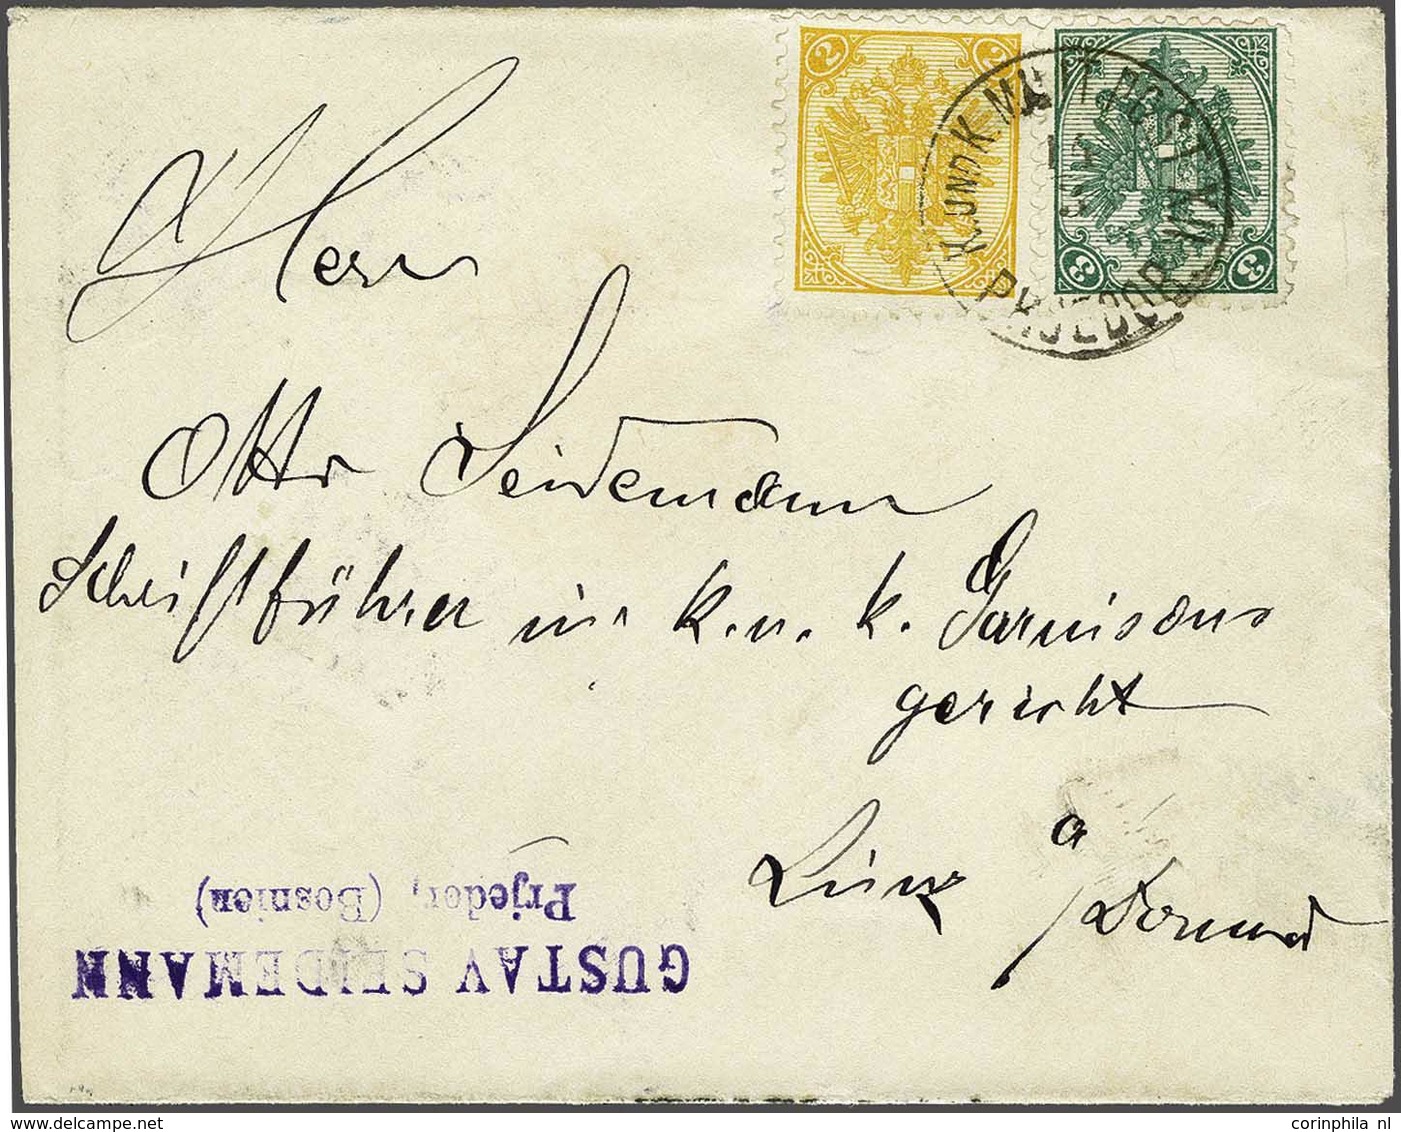 2
3 3
K. UND K. MILIT. POST PRJEDOR
Herrn
Otto Seidemann
Schriftführer im k. u. k. Garnisons
gericht
Linz a/Donau
GUSTAV SEIDEMANN
Prjedor, (Bosnien)
corinphila nl